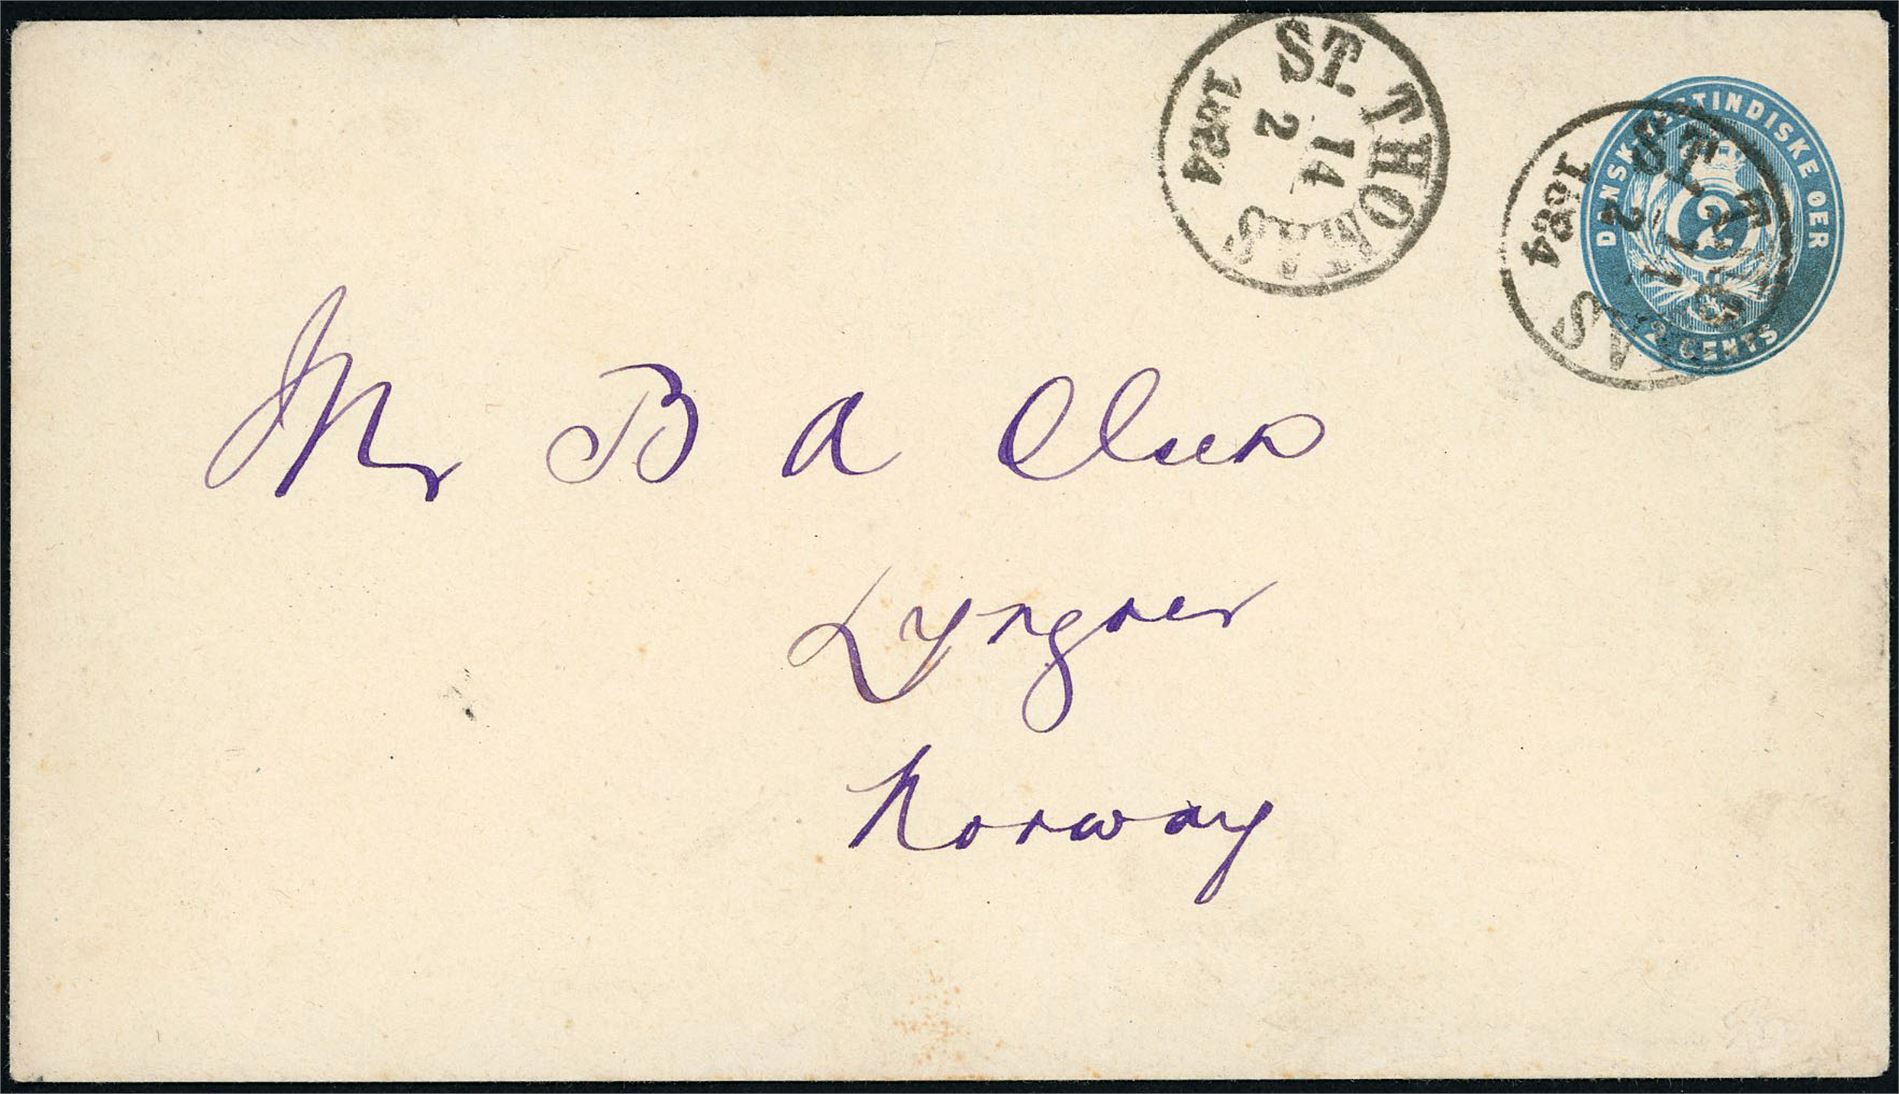 ST. THOMAS
14
2
1884
DANSK VESTINDISKE OER
2
2 CENTS
ST. T AS
2
1884
Mr B A Olsen
Lyngoer
Norway